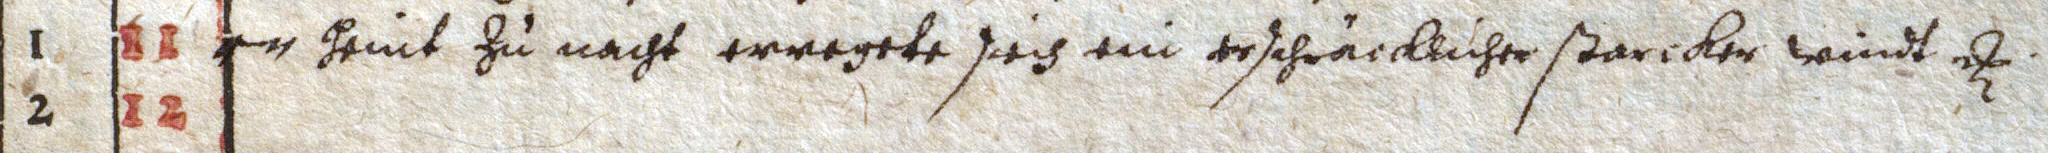 1 11 heint zu nacht erregete sich ein erschräcklicher starcker windt
2 12